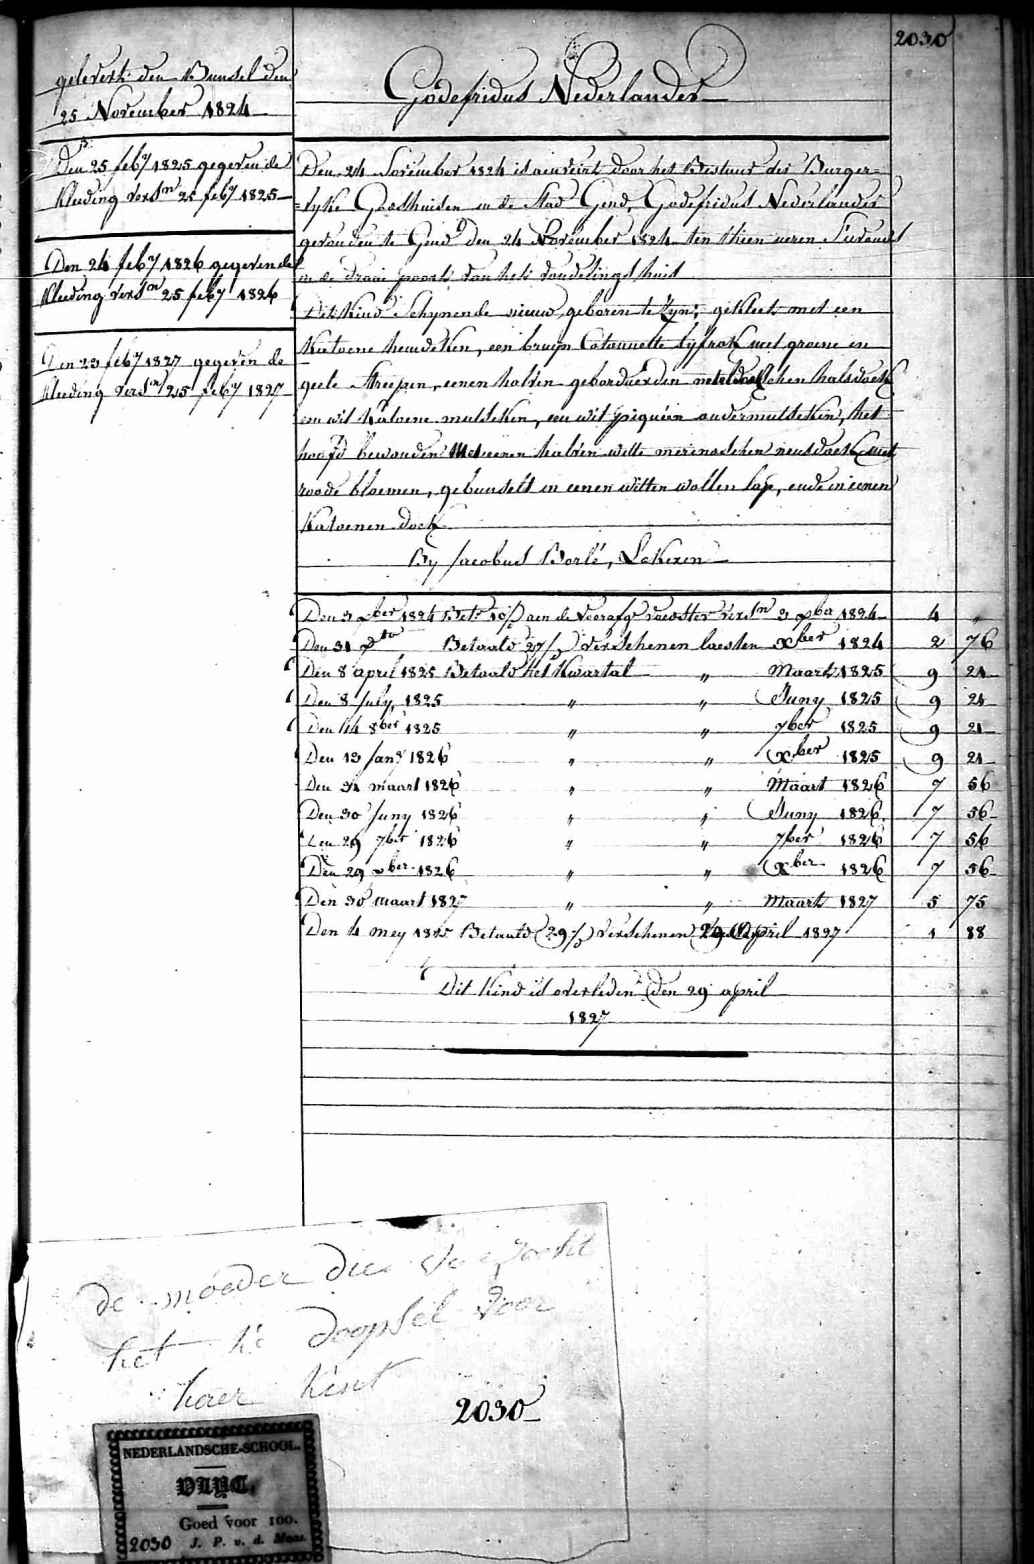 2030
Godefridus Nederlander
geleverd den Bunsel den
25 November 1824
Den 25 feby 1825 gegeven de
kleeding versn 25 feby 1825
Den 24 feby 1826 gegeven de
kleeding versn 25 feby 1826
Den 23 feby 1827 gegeven de
kleeding versn 25 feby 1827
Den 24 November 1824 is aenveird door het Bestuer der Burger=
=lyke Godshuisen in de Stad Gend, Godefridus Nederlander
gevonden te Gend den 24 November 1824 ten thien ueren s'avonds
in de draai poorte van het vondelingshuis
Dit Kind schynende nieuw geboren te zyn; gekleet met een
Katoene hemdeken, een bruyn Catonnette lyfrok met groene en
geele streepen, eenen halven geborduerden neteldoekschen halsdoek
een wit katoene mutseken, een wit piquéen ondermutseken, het
hoofd bewonden met eenen halven witte merinoschen neusdoek met
roode bloemen, gebunselt in eenen witten wollen lap, ende in eenen
Katoenen doek
By Jacobus Borlé, Lokeren
Den 3 xber 1824 Bet. aen de voorafge voedster versn 3 xber 1824 4 "
Den 31 do Betaald 27/ verschenen laesten xber 1824 2 76
Den 8 april 1825 Betaald het Kwartal " Maart 1825 9 21
Den 8 July 1825 " " Juny 1825 9 21
Den 14 8ber 1825 " " 7ber 1825 9 21
Den 13 Jany 1826 " " xber 1825 9 21
Den 31 maart 1826 " " Maart 1826 7 56
Den 30 Juny 1826 " " Juny 1826 7 56
Den 29 7ber 1826 " " 7ber 1826 7 56
Den 29 xber 1826 " " xber 1826 7 56
Den 30 maart 1827 " " Maart 1827 5 75
Den 4 mey 1825 Betaald 29/ verschenen 29 April 1827 1 88
Dit Kind is overleden den 29 april
1827
de moeder die versockt
het h doopsel voor
haer kint
2030
NEDERLANDSCHE-SCHOOL.
VLYT,
Goed voor 100.
2030 J. P. v. d. Maas.